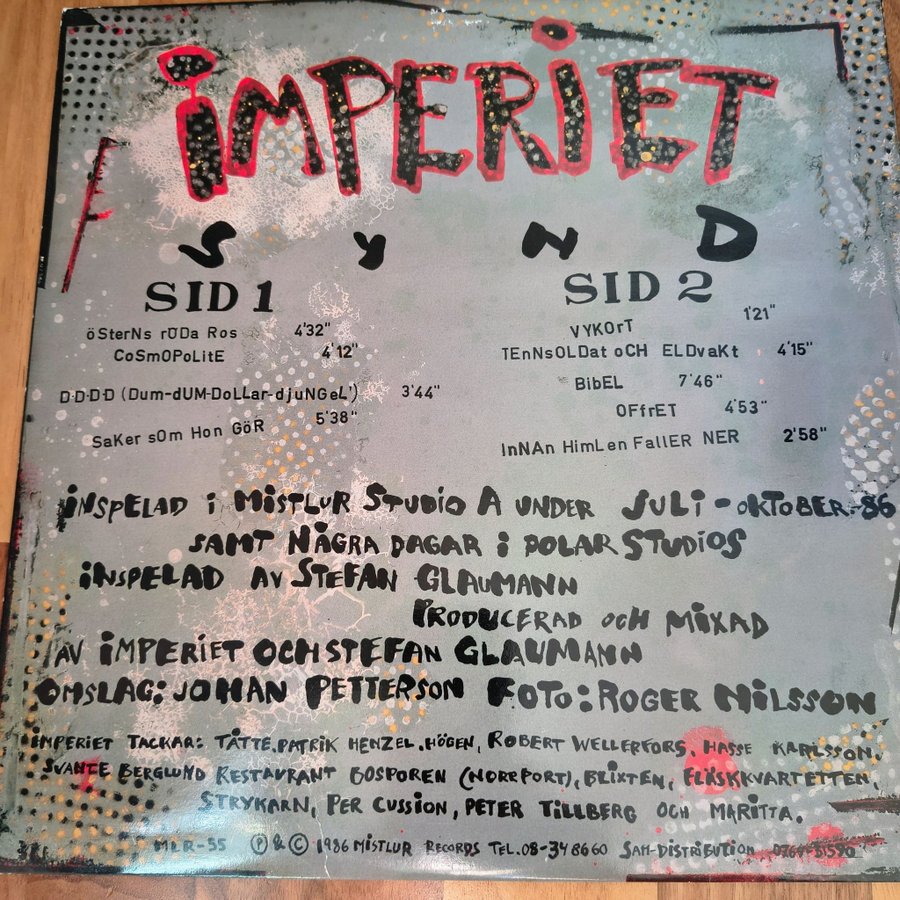 iMPERiET
SYND
SID 1
öSterNs rÖDa Ros 4'32"
CoSmOPoLitE 4'12"
D·D·D·D (Dum-dUM-DoLLar-djuNGeL') 3'44"
SaKer sOm Hon GöR 5'38"
SID 2
VYKOrT 1'21"
TEnNsOLDat oCH ELDvaKt 4'15"
BibEL 7'46"
OFfrET 4'53"
InNAn HimLen FallER NER 2'58"
iNSPELAD i MiSTLUR STUDiO A UNDER JULi - oKTOBER.-86
SAMT NÅGRA DAGAR i POLAR STUDiOS
iNSPELAD AV STEFAN GLAUMANN
PRODUCERAD OCH MiXAD
AV iMPERiET OCH STEFAN GLAUMANN
OMSLAG: JOHAN PETTERSON FOTO: ROGER NiLSSON
iMPERiET TACKAR: TÅTTE. PATRiK HENZEL. HÖGEN, ROBERT WELLERFORS, HASSE KARLSSON,
SVANTE BERGLUND RESTAURANT BOSPOREN (NORRPORT), BLiXTEN, FLÄSKKVARTETTEN,
STRYKARN, PER CUSSiON, PETER TiLLBERG OCH MARiTTA.
MLR-55 Ⓟ & © 1986 MiSTLUR RECORDS TEL. 08-348660 SAM-DiSTRiBUTiON